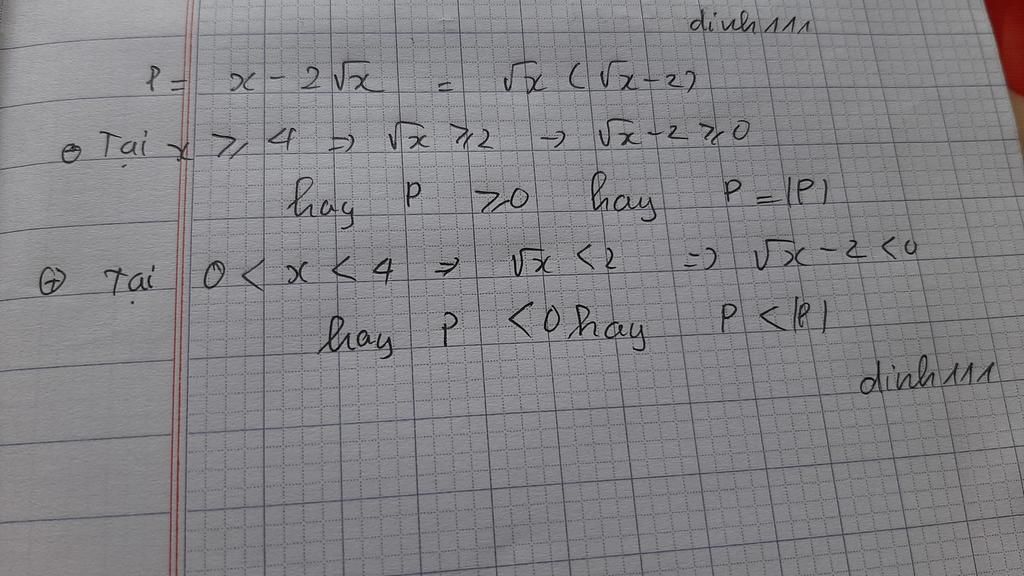 dinh111
P = x - 2√x = √x (√x-2)
Tại x ≥ 4 => √x ≥2 -> √x-2 ≥0
hay P ≥0 hay P = |P|
⊕ Tại 0 < x < 4 => √x <2 => √x - 2 <0
hay P <0 hay P < |P|
dinh111